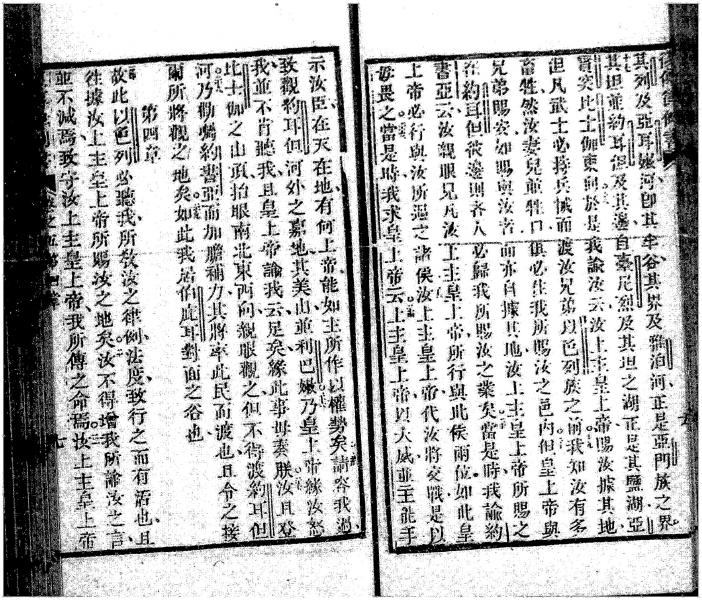 其列及亞耳嫩河即其半谷其界及雅泊河正是亞門族之界
其坦並約耳但及其邊自臺尼烈及其坦之湖正是其鹽湖亞
實突比士伽東向於是我諭汝云汝上主皇上帝賜汝據其地
但凡武士必持兵械而渡汝兄弟以色列族之前我知汝有多
畜牲然汝妻兒並牲口須必住我所賜汝之邑內但皇上帝與
兄弟賜安如賜與汝者而亦自據其地汝上主皇上帝所賜之
在約耳但彼邊則各人必歸我所賜汝之業矣當是時我諭約
書亞云汝親眼見凡汝上主皇上帝所行與此侯兩位如此皇
上帝必行與汝所逼之諸侯汝上主皇上帝代汝將交戰是以
毋畏之當是時我求皇上帝云上主皇上帝以大威並王能手
示汝臣在天在地有何上帝能如主所作以權勢矣請容我過
致觀約耳但河外之嘉地其美山並利巴嫩乃皇上帝緣汝怒
我並不肯聽我且皇上帝諭我云足矣緣此事毋奏朕汝且登
比士伽之山頂抬眼南北東西向親眼觀之但不得渡約耳但
河乃勒勵約書亞而加膽補力其將率此民而渡也且令之接
爾所將觀之地矣如此我居伯庇耳對面之谷也
第四章
故此以色列必聽我所教汝之律例法度致行之而有活也且
徃據汝上主皇上帝所賜汝之地矣汝不得增我所諭汝之言
並不減焉致守汝上主皇上帝我所傳之命焉汝上主皇上帝
七